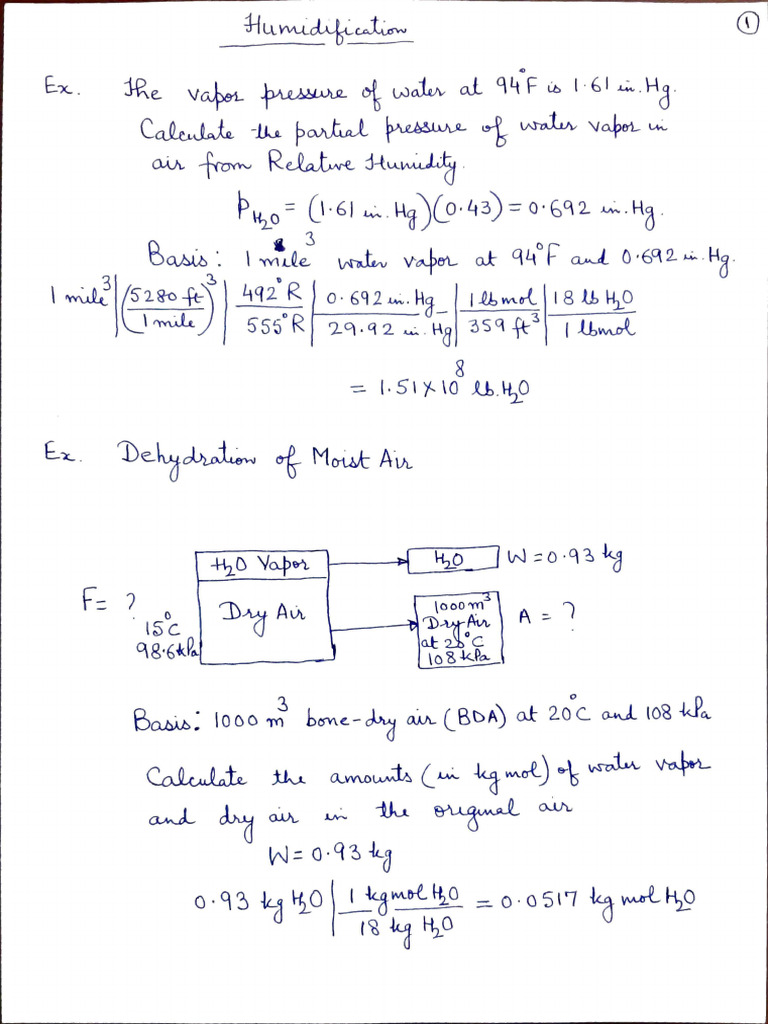 Humidification
①
Ex. The vapor pressure of water at 94°F is 1.61 in. Hg.
Calculate the partial pressure of water vapor in
air from Relative Humidity.
p_H₂O = (1.61 in. Hg)(0.43) = 0.692 in. Hg.
Basis: 1 mile³ water vapor at 94°F and 0.692 in. Hg.
1 mile³ | (5280 ft / 1 mile)³ | 492°R / 555°R | 0.692 in. Hg / 29.92 in. Hg | 1 lbmol / 359 ft³ | 18 lb H₂O / 1 lbmol
= 1.51 × 10⁸ lb. H₂O
Ex. Dehydration of Moist Air
H₂O Vapor
H₂O W = 0.93 kg
F = ?
15°C
98.6 kPa
Dry Air
1000 m³
Dry Air
at 20°C
108 kPa
A = ?
Basis: 1000 m³ bone-dry air (BDA) at 20°C and 108 kPa
Calculate the amounts (in kg mol) of water vapor
and dry air in the original air
W = 0.93 kg
0.93 kg H₂O | 1 kgmol H₂O / 18 kg H₂O = 0.0517 kg mol H₂O